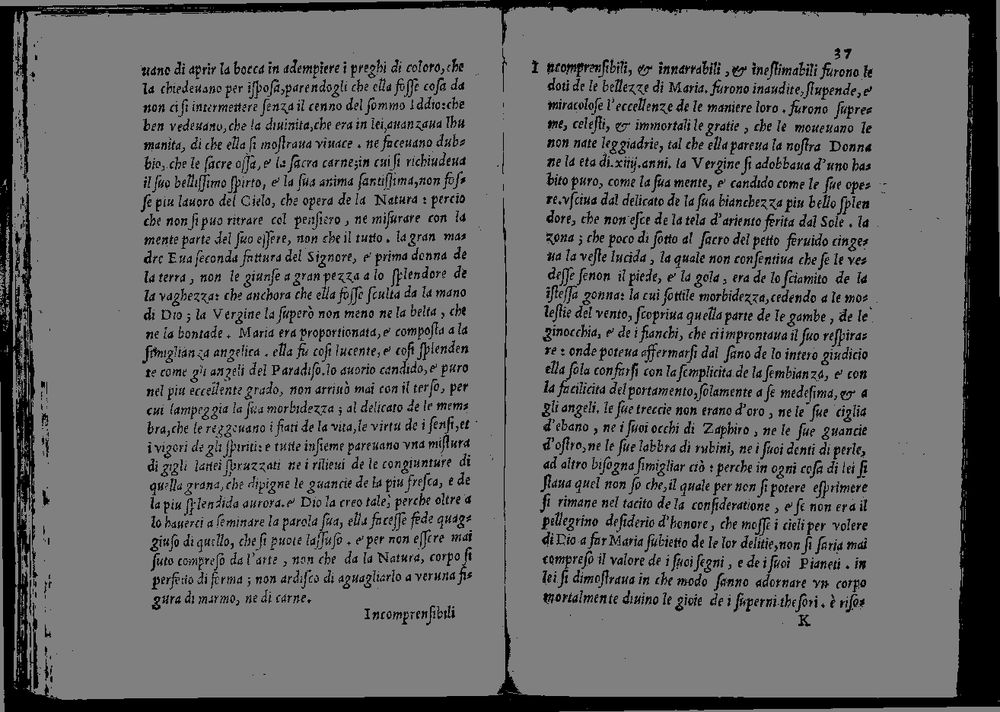 uano di aprir la bocca in adempiere i preghi di coloro, che
la chiedeuano per isposa, parendogli che ella fosse cosa da
non ci si intermettere senza il cenno del sommo Iddio: che
ben vedeuano, che la diuinita, che era in lei, auanzaua lhu
manita, di che ella si mostraua viuace. ne faceuano dub-
bio, che le sacre ossa, e' la sacra carne; in cui si richiudeua
il suo bellissimo spirto, e' la sua anima santissima, non fos-
se piu lauoro del Cielo, che opera de la Natura: percio
che non si puo ritrare col pensiero, ne misurare con la
mente parte del suo essere, non che il tutto. la gran ma-
dre Eua seconda fattura del Signore, e' prima donna de
la terra, non le giunse a gran pezza a lo splendore de
la vaghezza: che anchora che ella fosse sculta da la mano
di Dio; la Vergine la superò non meno ne la belta, che
ne la bontade. Maria era proportionata, e' composta a la
simiglianza angelica. ella fu cosi lucente, e' cosi splenden
te come gli angeli del Paradiso. lo auorio candido, e' puro
nel piu eccellente grado, non arriuò mai con il terso, per
cui lampeggia la sua morbidezza; al delicato de le mem-
bra, che le reggeuano i fiati de la vita, le virtu de i sensi, et
i vigori de gli spiriti: e tutte insieme pareuano vna mistura
di gigli lattei spruzzati ne i rilieui de le congiunture di
quella grana, che dipigne le guancie de la piu fresca, e de
la piu splendida aurora. e' Dio la creo tale; perche oltre a
lo hauerci a seminare la parola sua, ella facesse fede quag-
giuso di quello, che si puote lassuso. e' per non essere mai
suto compreso da l'arte, non che da la Natura, corpo si
perfetto di forma; non ardisco di aguagliarlo a veruna fi-
gura di marmo, ne di carne.
Incomprensibili
37
Incomprensibili, & innarrabili, & inestimabili furono le
doti de le bellezze di Maria. furono inaudite, stupende, e'
miracolose l'eccellenze de le maniere loro. furono supre-
me, celesti, & immortali le gratie, che le moueuano le
non nate leggiadrie, tal che ella pareua la nostra Donna
ne la eta di. xiiij. anni. la Vergine si adobbaua d'uno ha-
bito puro, come la sua mente, e' candido come le sue ope-
re. vsciua dal delicato de la sua bianchezza piu bello splen
dore, che non esce de la tela d'ariento ferita dal Sole. la
zona; che poco di sotto al sacro del petto feruido cinge-
ua la veste lucida, la quale non consentiua che se le ve-
desse senon il piede, e' la gola, era de lo sciamito de la
istessa gonna: la cui sottile morbidezza, cedendo a le mo-
lestie del vento, scopriua quella parte de le gambe, de le
ginocchia, e' de i fianchi, che ci improntaua il suo respira-
re: onde poteua affermarsi dal sano de lo intero giudicio
ella sola confarsi con la semplicita de la sembianza, e' con
la facilicita del portamento, solamente a se medesima, & a
gli angeli. le sue treccie non erano d'oro, ne le sue ciglia
d'ebano, ne i suoi occhi di Zaphiro, ne le sue guancie
d'ostro, ne le sue labbra di rubini, ne i suoi denti di perle,
ad altro bisogna simigliar ciò: perche in ogni cosa di lei si
staua quel non so che, il quale per non si potere esprimere
si rimane nel tacito de la consideratione, e' se non era il
pellegrino desiderio d'honore, che mosse i cieli per volere
di Dio a far Maria subietto de le lor delitie, non si saria mai
compreso il valore de i suoi segni, e de i suoi Pianeti. in
lei si dimostraua in che modo sanno adornare vn corpo
mortalmente diuino le gioie de i superni thesori. è riso-
K